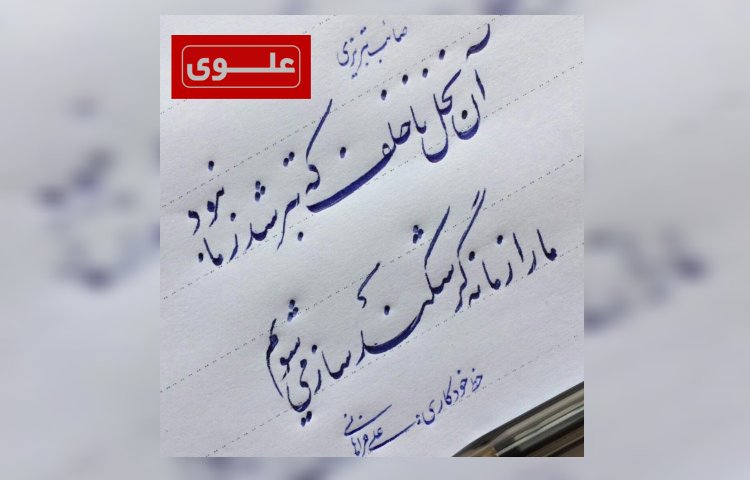 علوی
صائب تبریزی
آن نخل ناخلف که تبر شد ز ما نبود
ما را زمانه گر شکند ساز می شویم
خط خودکاری: علی فراهانی